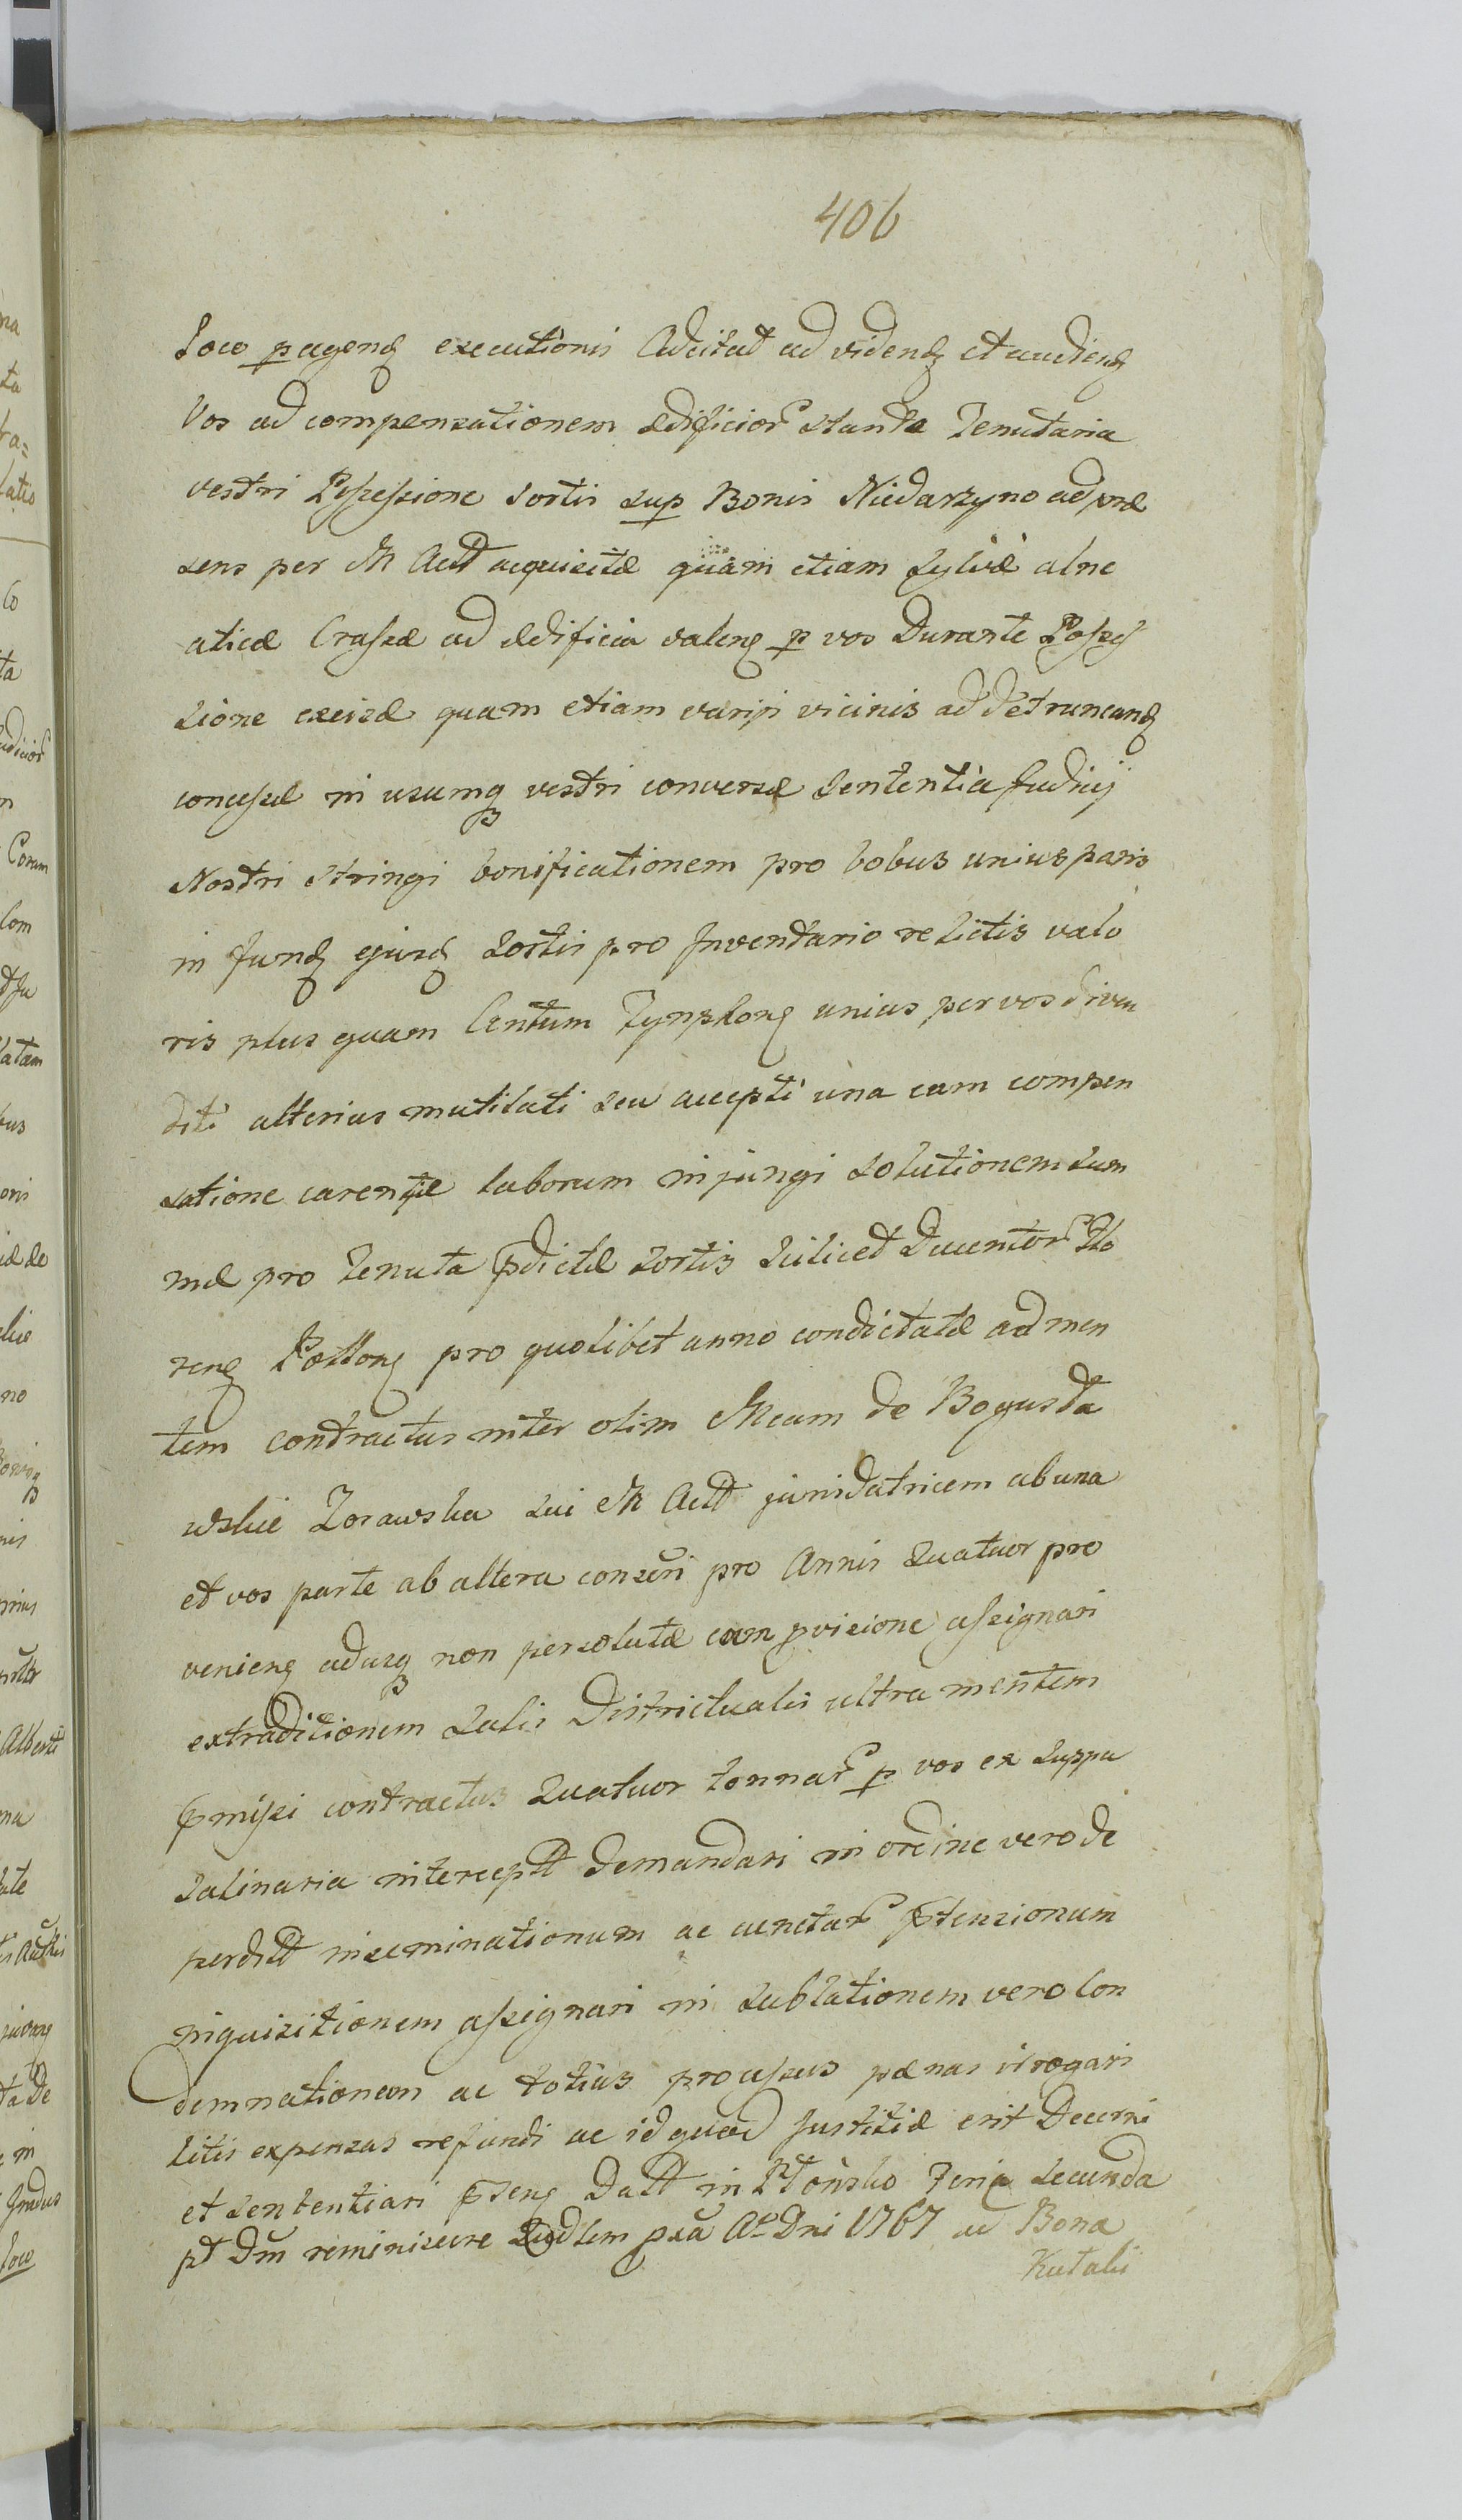 406
Loco peragend executionis Adcitat ad videnđ et audienđ
Vos ad compensationem ædificior stante Tenutaria
vestri Possessione Sortis sup Bonis Niedarzyno ad præ
sens per M Actt acquisitæ quam etiam sylvæ alne
aticæ Crassæ ad ædificia valenꝫ p vos Durante Posses
sione excisæ quam etiam varijs vicinis ad detruncanđ
concessæ in usumq vestri conversæ Sententia Judicij
Nostri stringi bonificationem pro bobus unius paris
in fund ejusd Sortis pro Inventario relictis valo
ris plus quam Centum Tynphonꝫ unius per vos diven
diti alterius mutilati seu accepti una cum compen
satione carentiæ laborum injungi solutionem sum
mæ pro Tenuta pdictæ sortis Scilicet Ducentor Flo
renꝫ Pollonꝫ pro quolibet anno condictatæ ad men
tem contractus inter olim Mcam de Bogusta
wskie Zorawska sui M Actt juridatricem ab una
et vos parte ab altera conscri pro Annis Quatuor pro
venienꝫ adusq non persolutæ cum pvisione assignari
extraditionem Salis Districtualis ultra mentem
pmissi contractus Quatuor tonnar p vos ex suppa
salinaria interceptt demandari in ordine vero de
perditt inseminationum ac cunctar ptensionum
inquisitionem assignari in sublationem vero con
demnationem ac totius processus pænas irrogari
litis expensas refundi ac id quod Justitiæ erit Decerni
et sententiari pſenꝫ Datt in Płońsko Feria Secunda
pt Dm reminiscere Qudlem pxa Ao Dni 1767 ad Bona
Kutalis